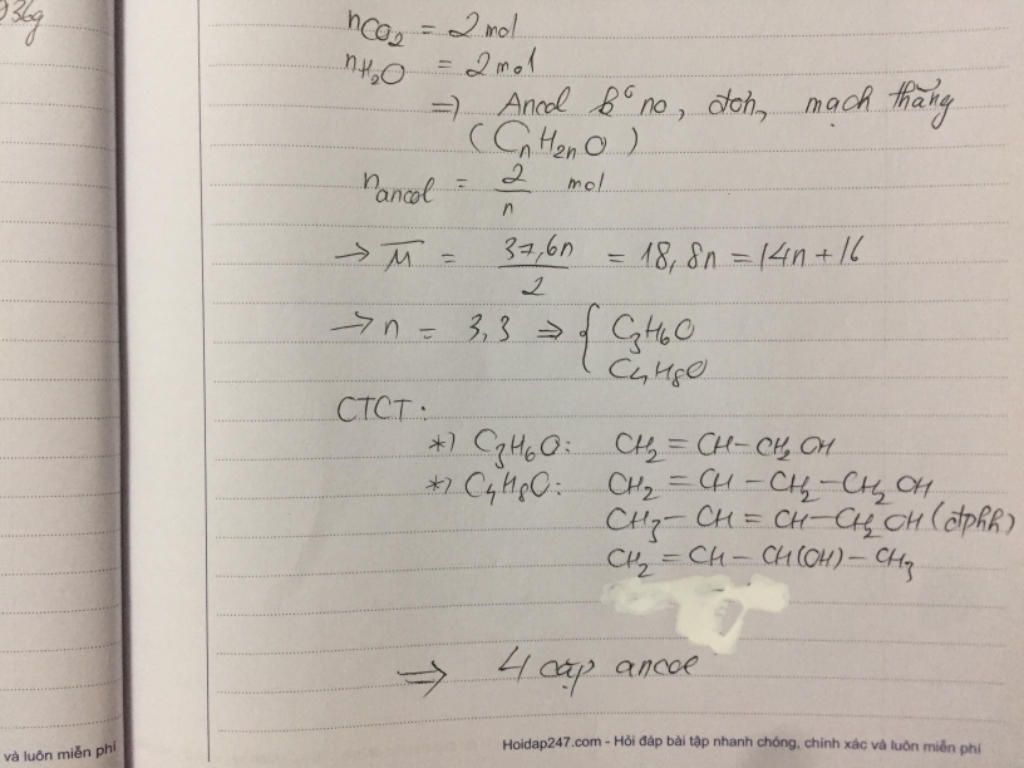 936g
nCO2 = 2 mol
nH2O = 2 mol
=) Ancol k⁰ no, đơn, mạch thẳng
(CnH2nO)
nancol = 2/n mol
→ M̅ = 37,6n/2 = 18,8n = 14n + 16
→ n = 3,3 ⇒ { C3H6O
C4H8O
CTCT:
*) C3H6O: CH2 = CH - CH2OH
*) C4H8O: CH2 = CH - CH2 - CH2OH
CH3 - CH = CH - CH2OH (đphh)
CH2 = CH - CH(OH) - CH3
⇒ 4 cặp ancol
và luôn miễn phí
Hoidap247.com - Hỏi đáp bài tập nhanh chóng, chính xác và luôn miễn phí